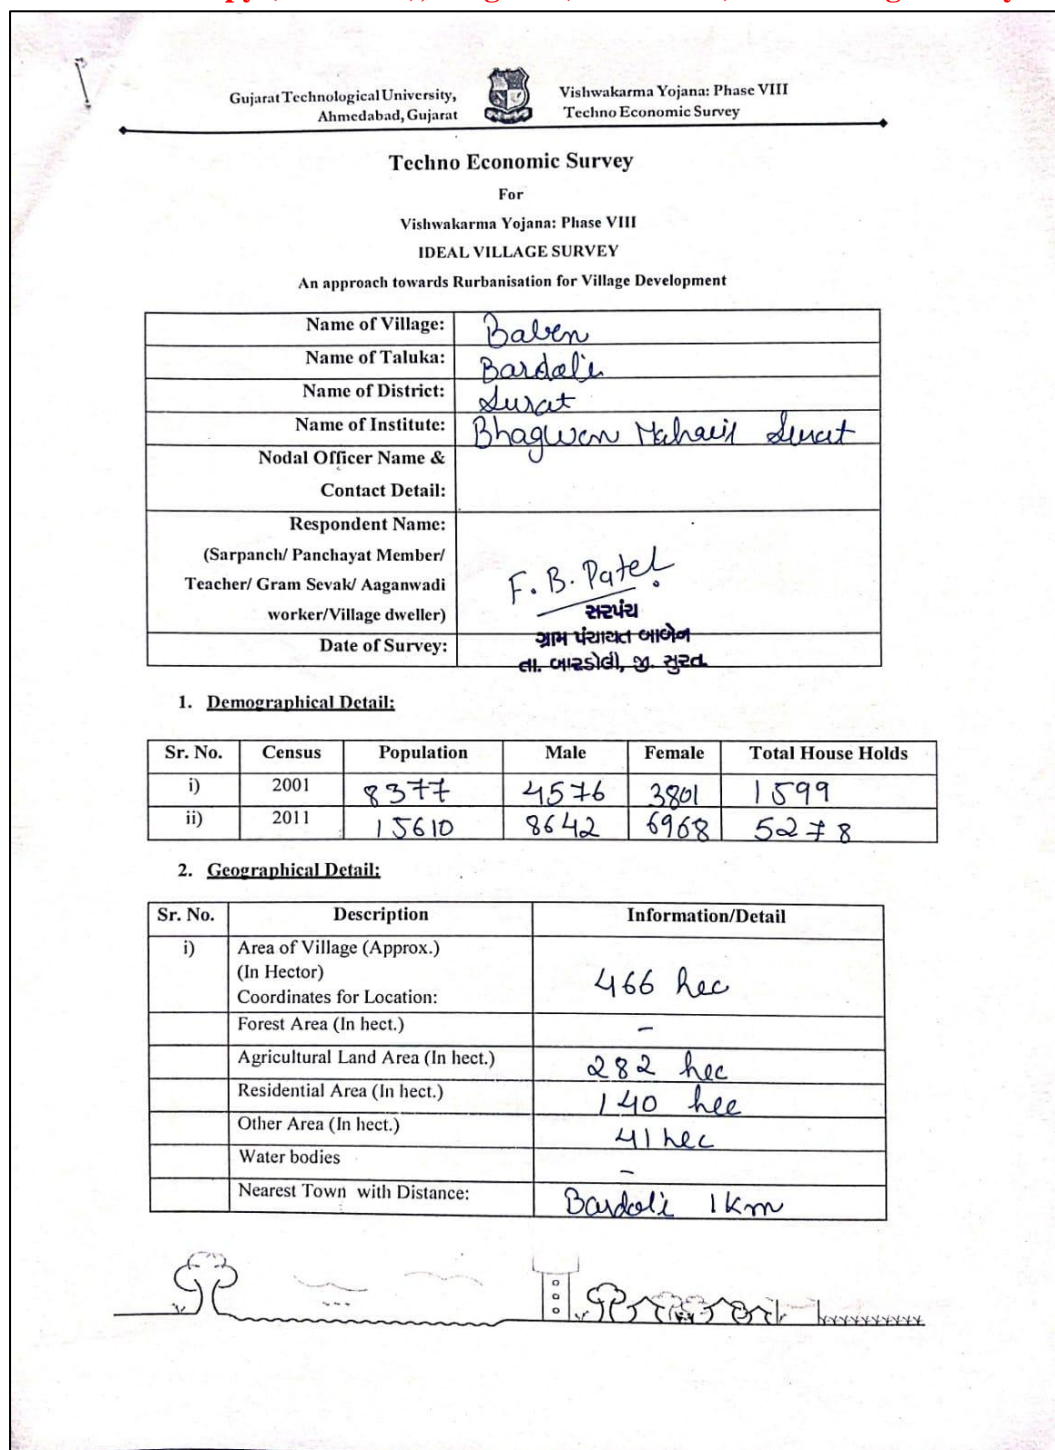 Gujarat Technological University,
Ahmedabad, Gujarat
Vishwakarma Yojana: Phase VIII
Techno Economic Survey
Techno Economic Survey
For
Vishwakarma Yojana: Phase VIII
IDEAL VILLAGE SURVEY
An approach towards Rurbanisation for Village Development
Name of Village: Baben
Name of Taluka: Bardoli
Name of District: Surat
Name of Institute: Bhagwan Mahavir Surat
Nodal Officer Name &
Contact Detail:
Respondent Name:
(Sarpanch/ Panchayat Member/
Teacher/ Gram Sevak/ Aaganwadi
worker/Village dweller)
F. B. Patel
સરપંચ
Date of Survey: ગ્રામ પંચાયત બાબેન
તા. બારડોલી, જી. સુરત.
1. Demographical Detail:
Sr. No. Census Population Male Female Total House Holds
i) 2001 8377 4576 3801 1599
ii) 2011 15610 8642 6968 5278
2. Geographical Detail:
Sr. No. Description Information/Detail
i) Area of Village (Approx.)
(In Hector)
Coordinates for Location:
466 hec
Forest Area (In hect.) -
Agricultural Land Area (In hect.) 282 hec
Residential Area (In hect.) 140 hec
Other Area (In hect.) 41 hec
Water bodies -
Nearest Town with Distance: Bardoli 1 Km